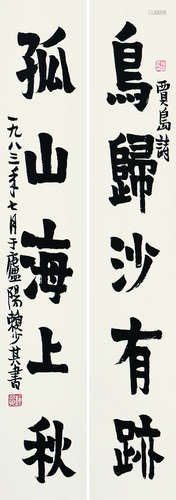 賈島詩
鳥歸沙有跡
孤山海上秋
一九八三年七月于廬陽賴少其書